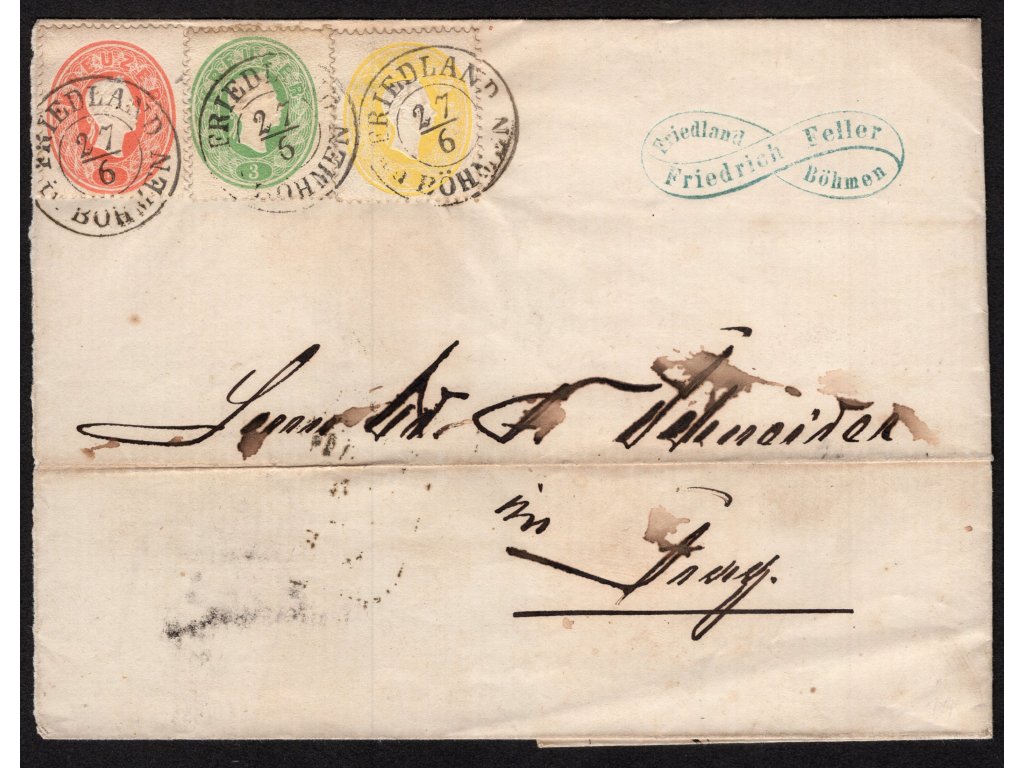 FRIEDLAND
27/6
in BÖHMEN
FRIEDLAND
27/6
BÖHMEN
3
FRIEDLAND
27/6
in BÖHMEN
Friedland Feller
Friedrich Böhmen
F. Schneider
in
Prag.